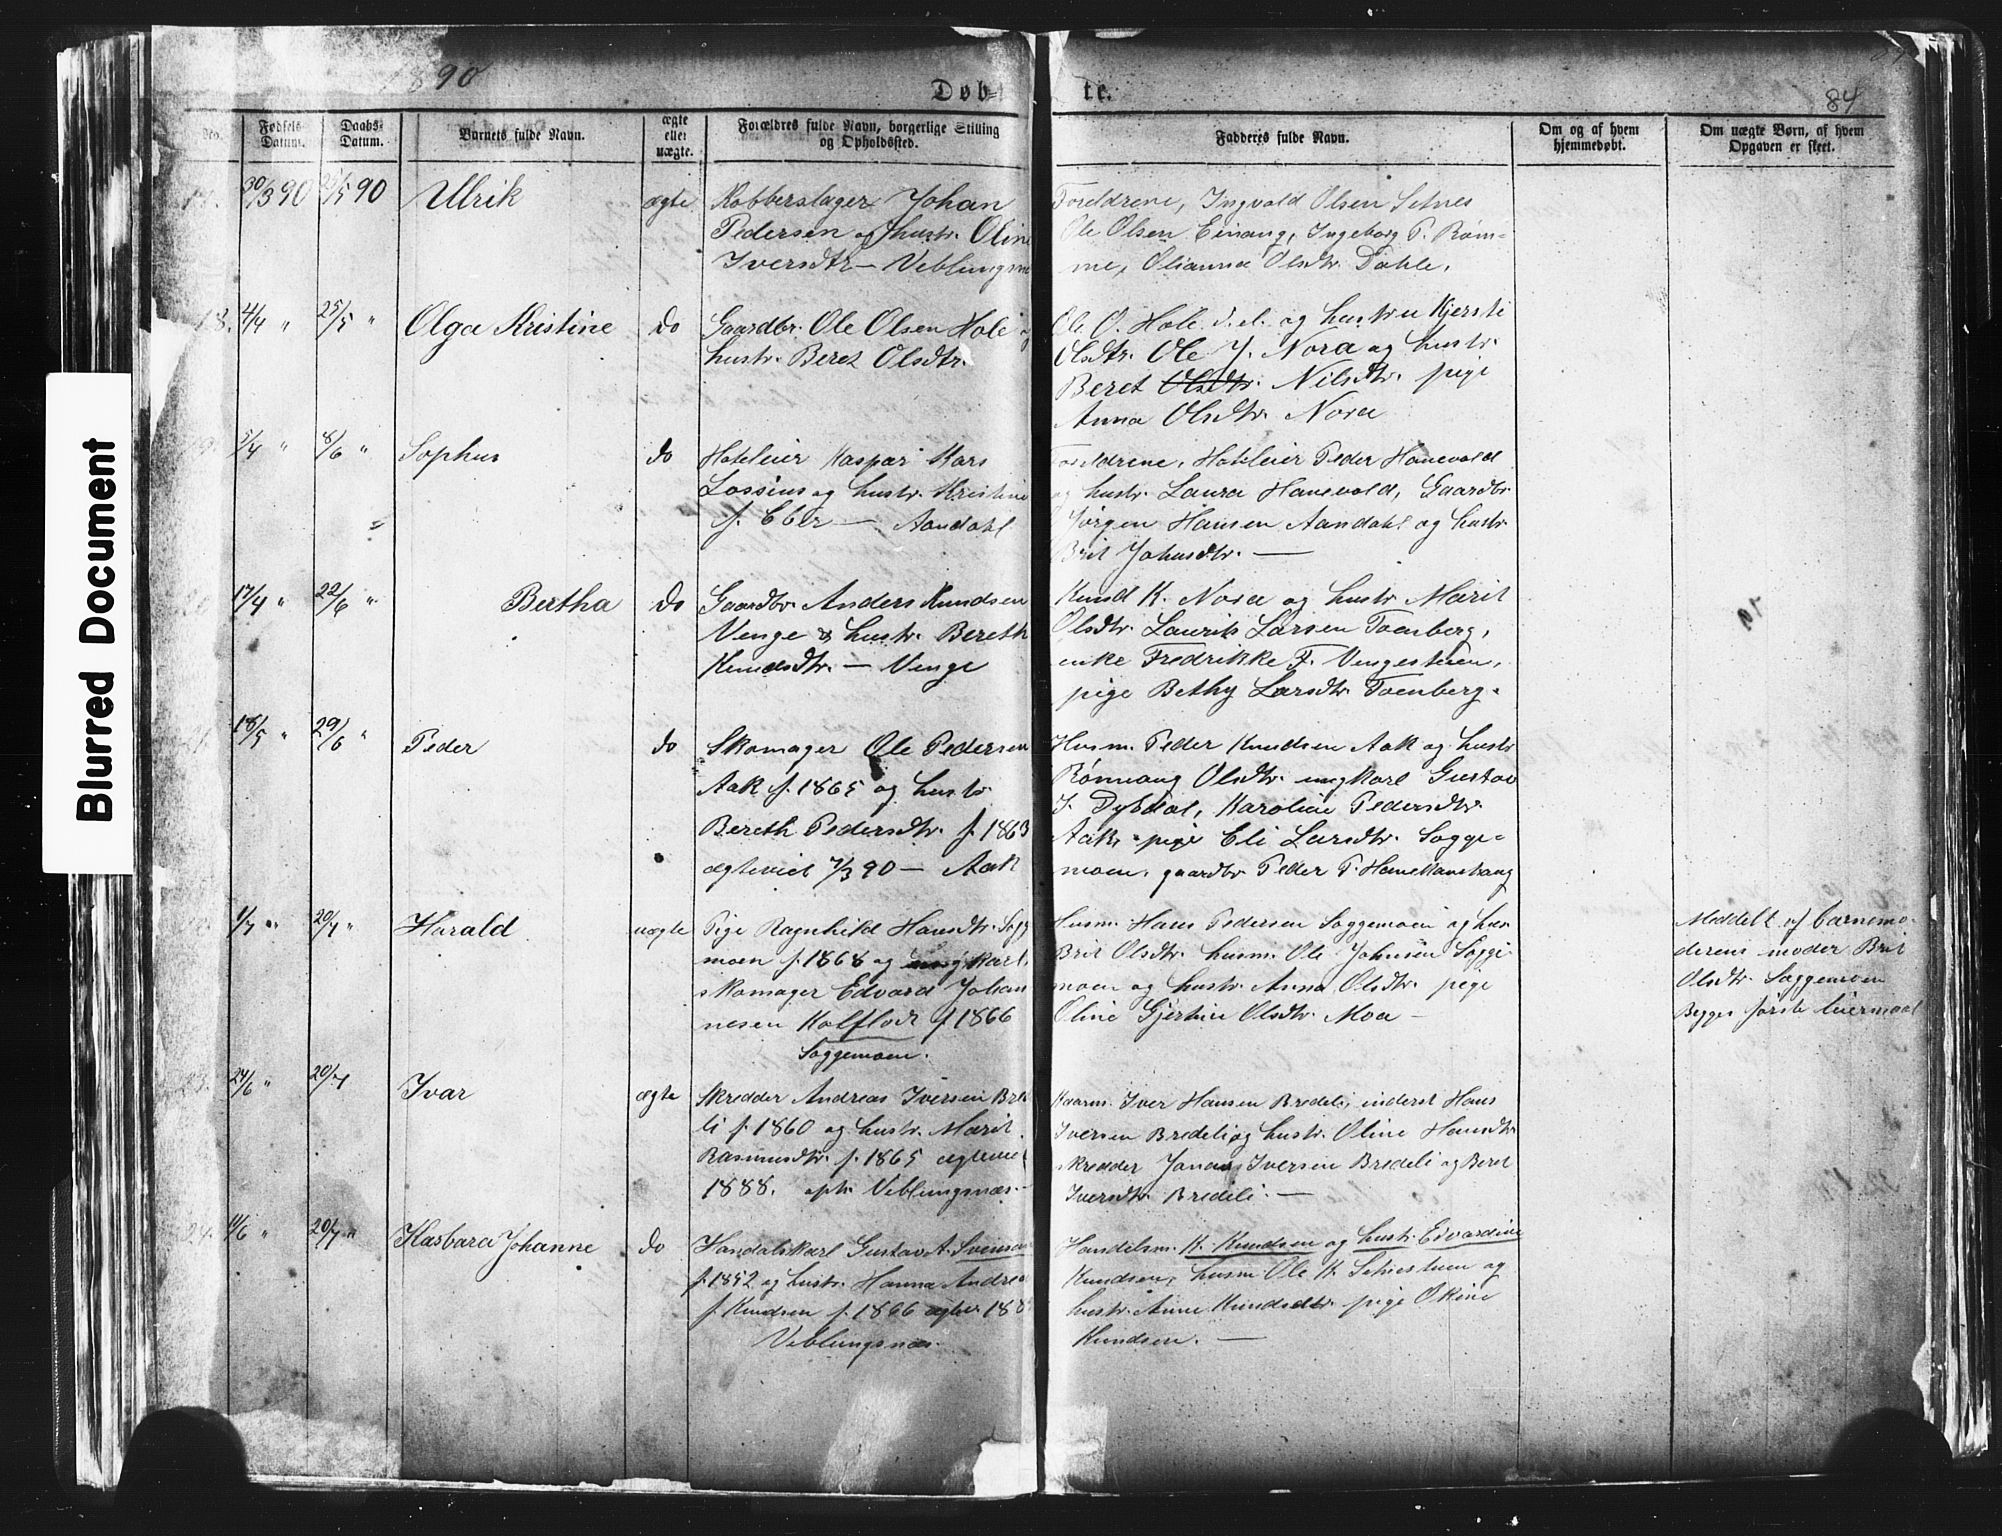 Blurred Document
1890
Døb= te.
84
No.
Fødsels-
Datum.
Daabs-
Datum.
Barnets fulde Navn.
ægte
eller
uægte.
Forældres fulde Navn, borgerlige Stilling
og Opholdssted.
Faddernes fulde Navn.
Om og af hvem
hjemmedøbt.
Om uægte Børn, af hvem
Opgaven er skeet.
17. 30/3 90 /5 90 Ulrik ægte Kobberslager Johan
Pedersen og hustr. Oline
Iversdtr — Veblungsnæ
Forældrene, Ingvald Olsen Setnes
Ole Olsen Einang, Ingeborg P. Røm-
me, Olianna Olsdtr. Dahle.
18. 4/4 " 25/5 " Olga Kristine do Gaardbr. Ole Olsen Hole og
hustr. Beret Olsdtr.
Ole O. Hole d.e. og hustru Kjersti
Olsdtr. Ole J. Nora og hustr.
Beret Olsdtr. Nilsdtr. pige
Anna Olsdtr. Nora
19. 5/4 " 8/6 " Sophus do Hoteleier Kaspar Kars
Lossius og hustr. Kristine
f. Ebler — Aandahl
Forældrene, Hoteleier Peder Hanevold
og hustr. Laura Hanevold, Gaardbr.
Jørgen Hansen Aandahl og hustr.
Brit Johnsdtr. —
20. 17/4 " 22/6 " Bertha do Gaardbr. Anders Knudsen
Venge & hustr. Bereth
Knudsdtr. — Venge
Knud K. Nora og hustr. Marit
Olsdtr. Laurits Larsen Toenberg,
enke Fredrikke F. Vengesteen,
pige Bethy Larsdtr. Toenberg.
21. 18/5 " 29/6 " Peder do Skomager Ole Pedersen
Aak f. 1865 og hustr.
Bereth Pedersdtr. f. 1863
ægteviet 7/3 90 — Aak
Husm. Peder Knudsen Aak og hustr
Rønnaug Olsdtr. ungkarl Gustav
J. Dybdal, Karoline Pedersdtr.
Aak, pige Eli Larsdtr. Sogge-
moen, gaardbr Peder P. Hanekamhaug
1/7 " 20/7 " Harald uægte Pige Ragnhild Hansdtr. Sogg
moen f. 1868 og ung karl,
skomager Edvard Johan
nesen Kolflot f. 1866
Soggemoen.
Husm. Hans Pedersen Soggemoen og hus
Brit Olsdtr. husm. Ole Johnsen Sogge
moen og hustr. Anna Olsdtr. pige
Oline Gjertine Olsdtr. Moa —
Meddelt af barnemo-
derens moder Brit
Olsdtr. Soggemoen
Begges første leiermaal
23. 24/6 " 20/7 Ivar ægte Skredder Andreas Iversen Bre
li f. 1860 og hustr. Marit
Rasmusdtr. f. 1865 ægteviet
1888. oph. Veblungsnæs.
Kaarm. Iver Hansen Bredeli, inderst Hans
Iversen Bredeli og hustr. Oline Hansdtr.
skredder Jonas Iversen Bredeli og Beret
Iversdtr. Bredeli. —
24. 11/6 " 20/7 " Barbara Johanne do Handelskarl Gustav A. Svenson
f. 1852 og hustr. Hanna Andrea
f. Knudsen f. 1866 ægtev. 188
Veblungsnæs.
Handelsm. K. Knudsen og hustr. Edvardine
Knudsen, husm Ole K. Setnesteen og
hustr. Anne Knudsdtr. pige Oline
Knudsen. —